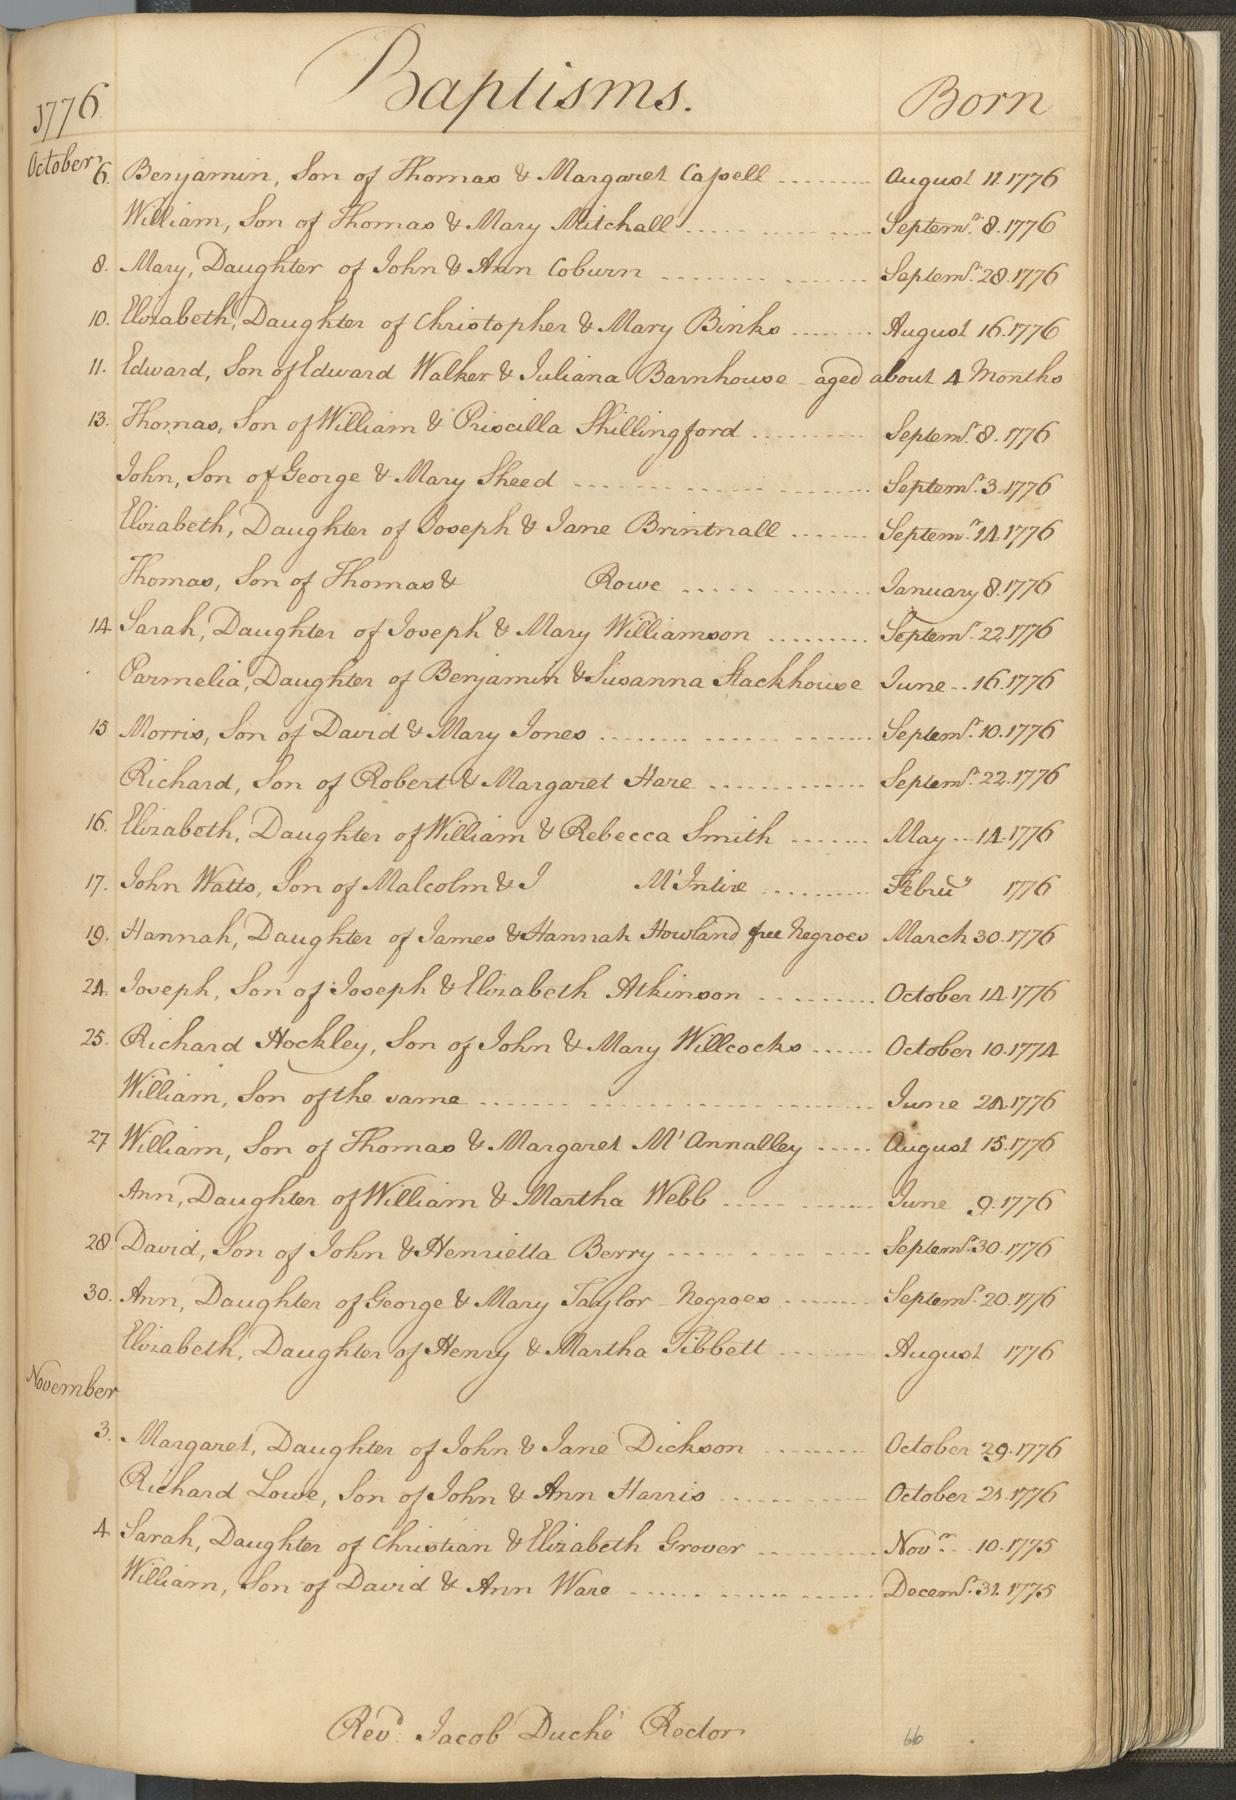 1776 Baptisms. Born
October 6. Benjamin, Son of Thomas & Margaret Capell ......... August 11. 1776
William, Son of Thomas & Mary Mitchall ......... Septemr. 8. 1776
8. Mary, Daughter of John & Ann Coburn ......... Septemr. 28. 1776
10. Elizabeth, Daughter of Christopher & Mary Binks ....... August 16. 1776
11. Edward, Son of Edward Walker & Juliana Barnhouse - aged about 4 Months
13. Thomas, Son of William & Priscilla Shillingford ......... Septemr. 8. 1776
John, Son of George & Mary Sheed ......... Septemr. 3. 1776
Elizabeth, Daughter of Joseph & Jane Brintnall ....... Septemr. 14. 1776
Thomas, Son of Thomas & Rowe ......... January 8. 1776
14 Sarah, Daughter of Joseph & Mary Williamson ......... Septemr. 22. 1776
Parmelia, Daughter of Benjamin & Susanna Stackhouse June .. 16. 1776
15 Morris, Son of David & Mary Jones ......... Septemr. 10. 1776
Richard, Son of Robert & Margaret Hare ......... Septemr. 22. 1776
16. Elizabeth, Daughter of William & Rebecca Smith ....... May ... 14. 1776
17. John Watts, Son of Malcolm & J M'Intire ......... Febru'y 1776
19. Hannah, Daughter of James & Hannah Howland free Negroes March 30. 1776
24. Joseph, Son of Joseph & Elizabeth Atkinson ......... October 14. 1776
25. Richard Hockley, Son of John & Mary Willcocks ...... October 10. 1774
William, Son of the same ......... June 24. 1776
27 William, Son of Thomas & Margaret M'Annalley ..... August 15. 1776
Ann, Daughter of William & Martha Webb ......... June 9. 1776
28. David, Son of John & Henrietta Berry ......... Septemr. 30. 1776
30. Ann, Daughter of George & Mary Taylor - Negroes ....... Septemr. 20. 1776
Elizabeth, Daughter of Henry & Martha Tibbett ....... August 1776
November
3. Margaret, Daughter of John & Jane Dickson ........ October 29. 1776
Richard Lowe, Son of John & Ann Harris ......... October 21. 1776
4. Sarah, Daughter of Christian & Elizabeth Grover ......... Novr. .. 10. 1775
William, Son of David & Ann Ware ......... Decemr. 31. 1775
Revd. Jacob Duché Rector
66